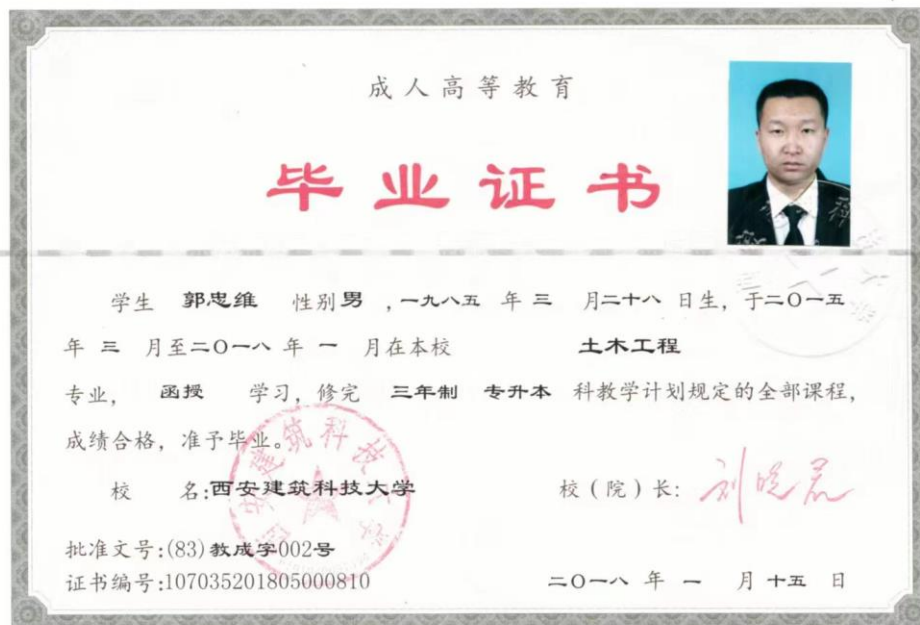 成人高等教育
毕业证书
学生 郭忠维 性别男,一九八五 年 三 月二十八 日生,于二〇一五
年 三 月至二〇一八 年 一 月在本校 土木工程
专业, 函授 学习,修完 三年制 专升本 科教学计划规定的全部课程,
成绩合格,准予毕业。
校 名:西安建筑科技大学 校(院)长: 刘晓君
批准文号:(83)教成字002号
证书编号:107035201805000810 二〇一八 年 一 月 十五 日
西安建筑科技大学